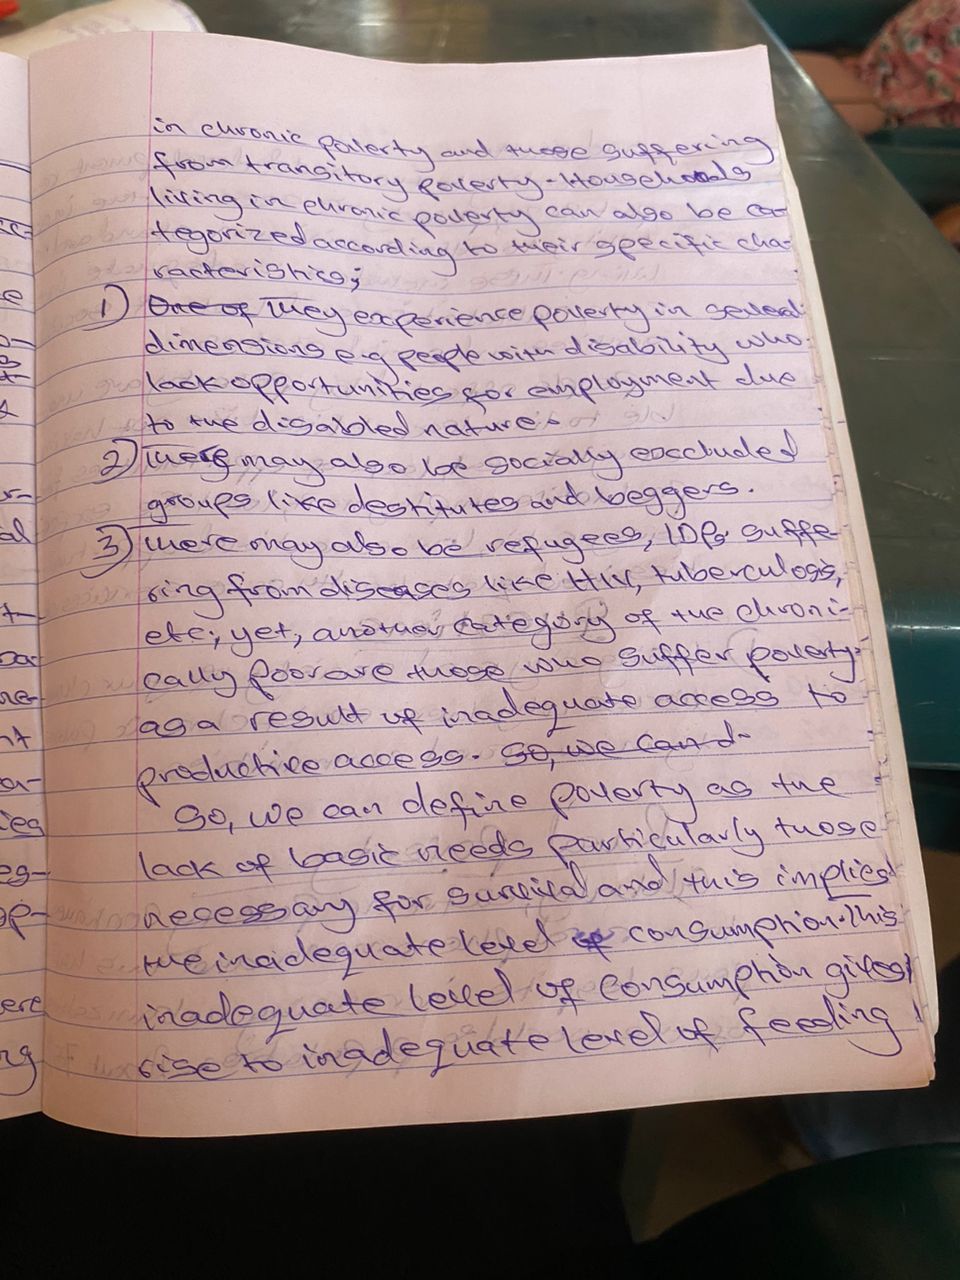 in chronic poverty and those suffering
from transitory poverty. Households
living in chronic poverty can also be ca-
tegorized according to their specific cha-
racteristics;
1) One of They experience poverty in several
dimensions e.g people with disability who
lack opportunities for employment due
to the disabled nature.
2) There may also be socially excluded
groups like destitutes and beggers.
3) There may also be refugees, IDPs suffe-
ring from diseases like HIV, tuberculosis,
etc; yet, another category of the chroni-
cally poor are those who suffer poverty
as a result of inadequate access to
productive access. So, we can d-
So, we can define poverty as the
lack of basic needs particularly those
necessary for survival and this implies
the inadequate level of consumption. This
inadequate level of consumption gives
rise to inadequate level of feeding